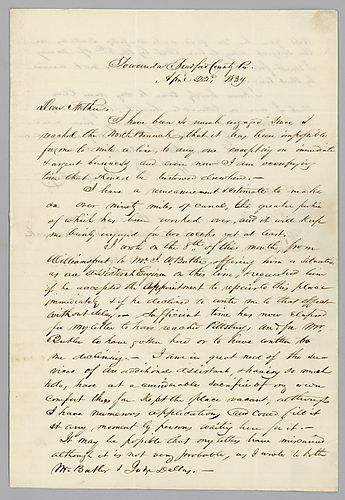 Towanda Bradford County Pa.
April 22d 1839
Dear Mother,
I have been so much engaged since I
reached the North Branch, that it has been impossible
for me to write a line to any one excepting on immediate
& urgent business and even now I am occupying
time that should be bestowed elsewhere. —
I have a remeasurement & estimate to make
on over ninety miles of canal, the greater part
of which has been worked over, and it will keep
me busily engaged for two weeks yet at least.
I wrote on the 8th of this month, from
Williamsport to Mr. J. H. Butler, offering him a situation
as an Assistant Engineer on this line, & requested him
if he accepted the appointment to repair to this place
immediately & if he declined to write me to that effect
without delay. — Sufficient time has now elapsed
for my letter to have reached Pittsburg, and for Mr.
Butler to have gotten here or to have written to
me declining. — I am in great need of the ser-
vices of an additional Assistant, & having so much
to do, have at a considerable sacrifice of my own
comfort thus far kept the place vacant, although
I have numerous applications, and could fill it
at any moment by persons waiting here for it. —
It may be possible that my letters have miscarried
although it is not very probable, as I wrote to both
Mr. Butler & Judge Dallas. —